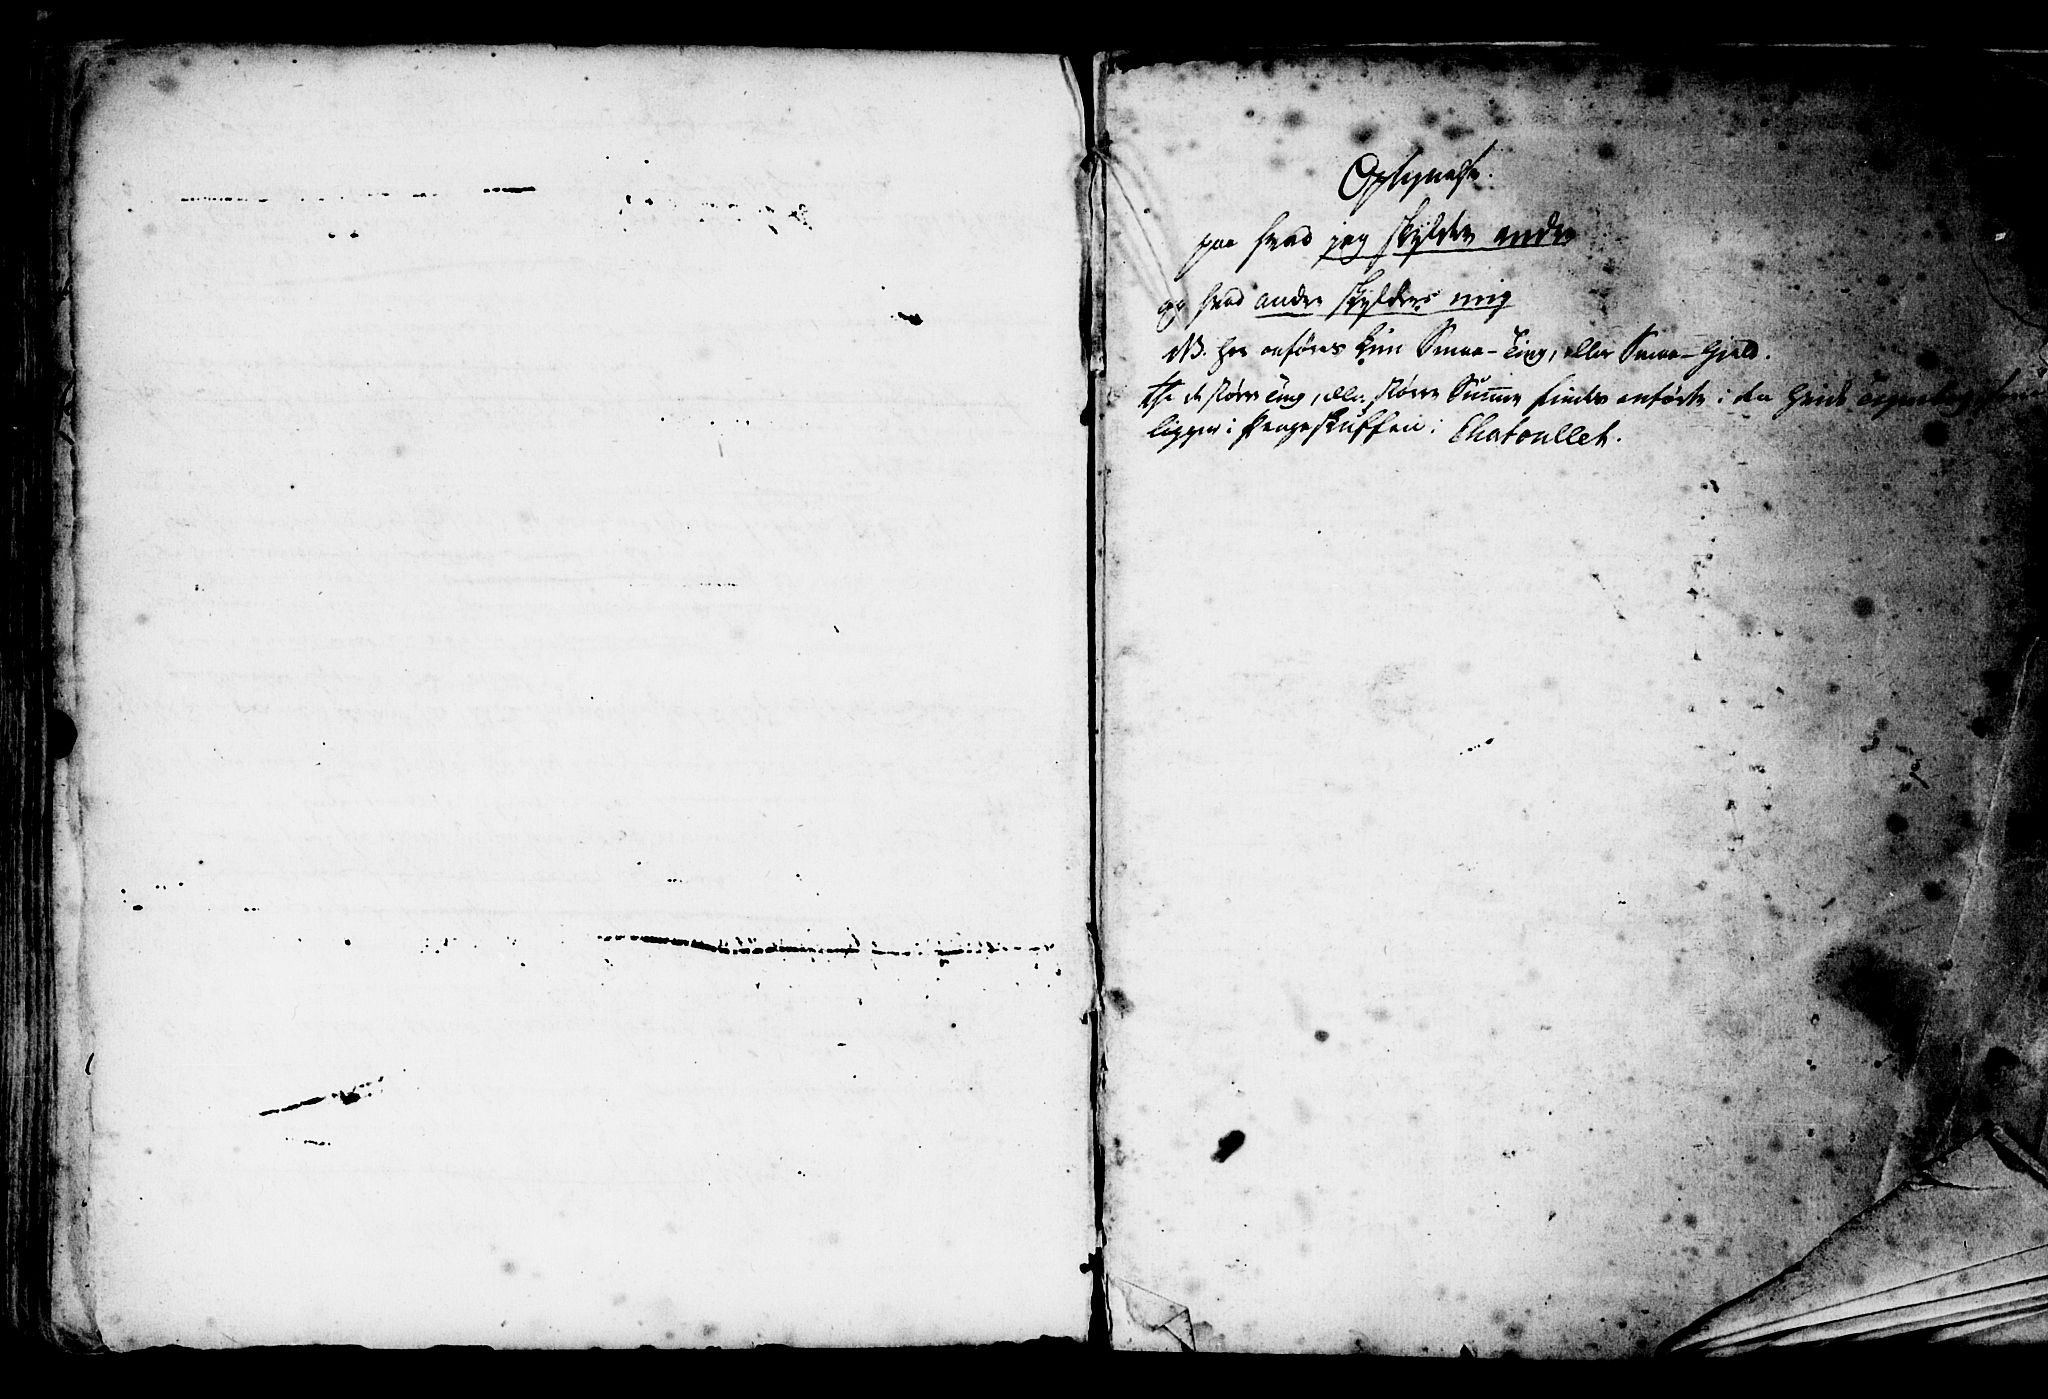 Optegnelse.
paa hvad jeg skylder andre
og hvad andre skylder mig
NB. her anføres kun Smaae-Ting, eller Smaae-Gjeld.
the de større Ting, eller større Summe findes anførte i den hvide
ligger i Pengeskuffen i Chatoullet.